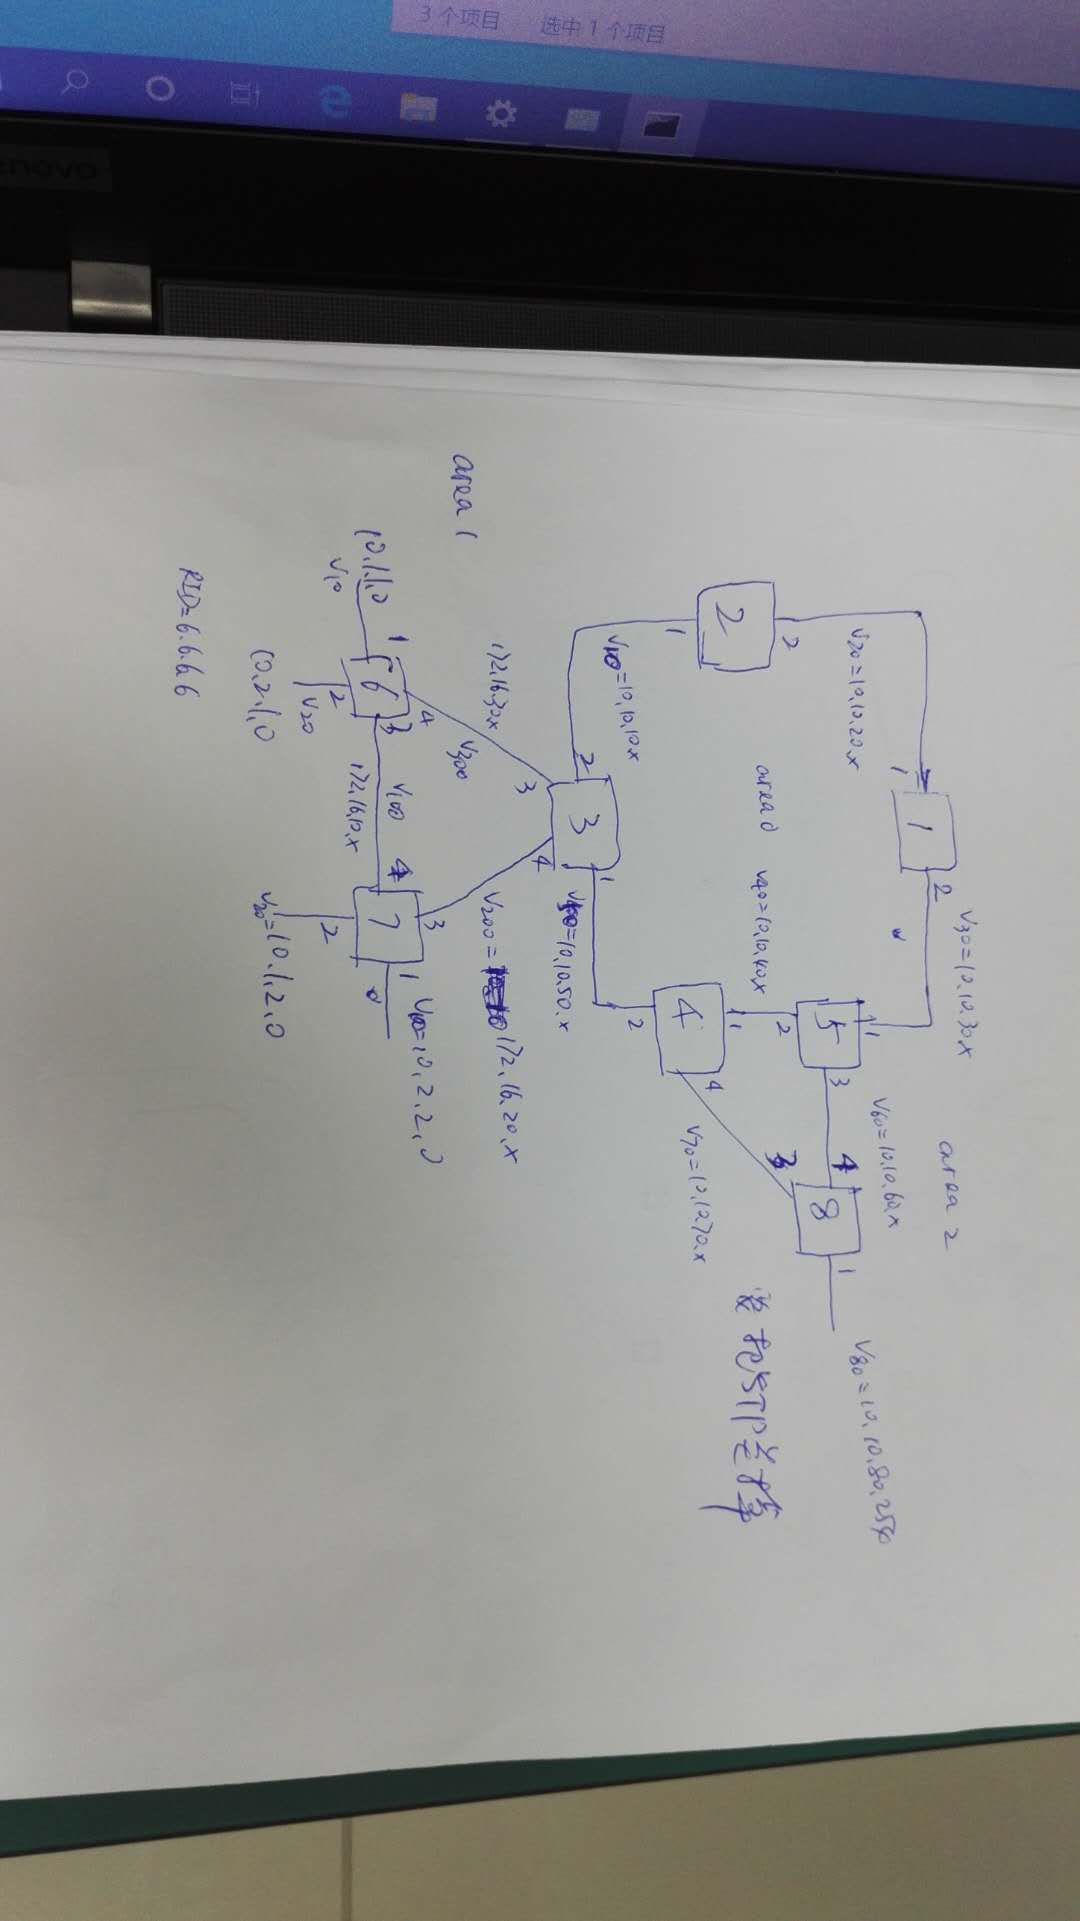 3 个项目 选中 1 个项目
enovo
area 2
V80=10.10.80.254
V30=10.10.30.x
V60=10.10.60.x
1
1
2
1
5
3
2
4
8
1
3
V20=10.10.20.x
area 0
V40=10.10.40.x
2
2
1
V70=10.10.70.x
1
4
4
2
V10=10.10.10.x
=10.10.50.x
2
3
1
3
4
172.16.30.x
V300
V200=
172.16.20.x
area 1
10.1.1.0
V10
1
6
4
3
2
V20
10.2.1.0
V100
172.16.10.x
4
7
3
1
2
=10.2.2.0
V20=10.1.2.0
RID=6.6.6.6